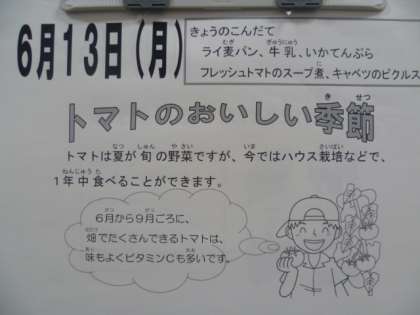 6月13日(月)
きょうのこんだて
ライ麦パン、牛乳、いかてんぷら
フレッシュトマトのスープ煮、キャベツのピクルス
トマトのおいしい季節
トマトは夏が旬の野菜ですが、今ではハウス栽培などで、
1年中食べることができます。
6月から9月ごろに、
畑でたくさんできるトマトは、
味もよくビタミンCも多いです。